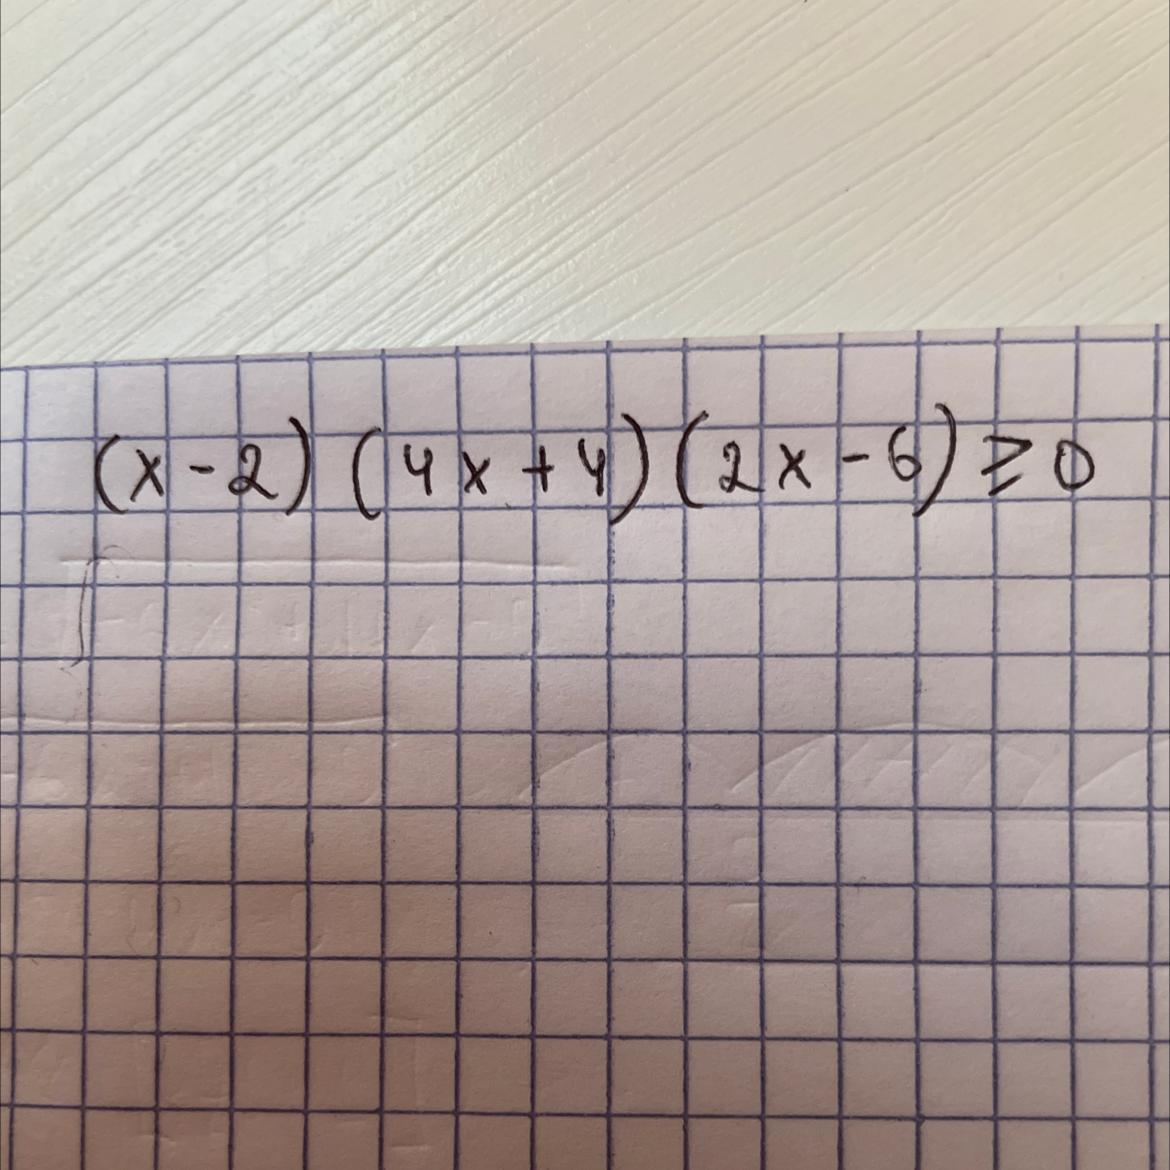 (x-2) (4x+4) (2x-6) ≥ 0